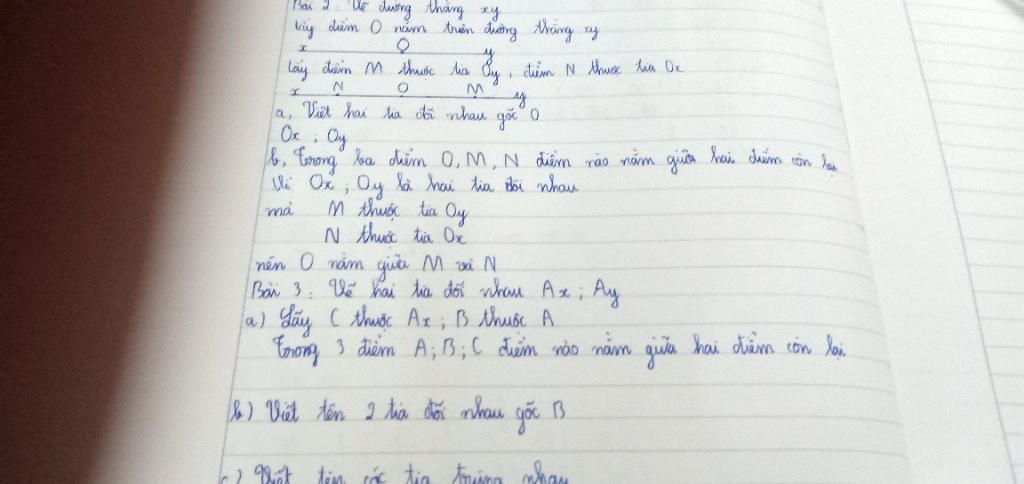 Bài 2: Vẽ đường thẳng xy
Lấy điểm O nằm trên đường thẳng xy
x O y
Lấy điểm M thuộc tia Oy, điểm N thuộc tia Ox
x N O M y
a, Viết hai tia đối nhau gốc O
Ox ; Oy
b, Trong ba điểm O, M, N điểm nào nằm giữa hai điểm còn lại
Vì Ox ; Oy là hai tia đối nhau
mà M thuộc tia Oy
N thuộc tia Ox
nên O nằm giữa M và N
Bài 3: Vẽ hai tia đối nhau Ax ; Ay
a) Lấy C thuộc Ax ; B thuộc A
Trong 3 điểm A ; B ; C điểm nào nằm giữa hai điểm còn lại
b) Viết tên 2 tia đối nhau gốc B
c) Viết tên các tia trùng nhau